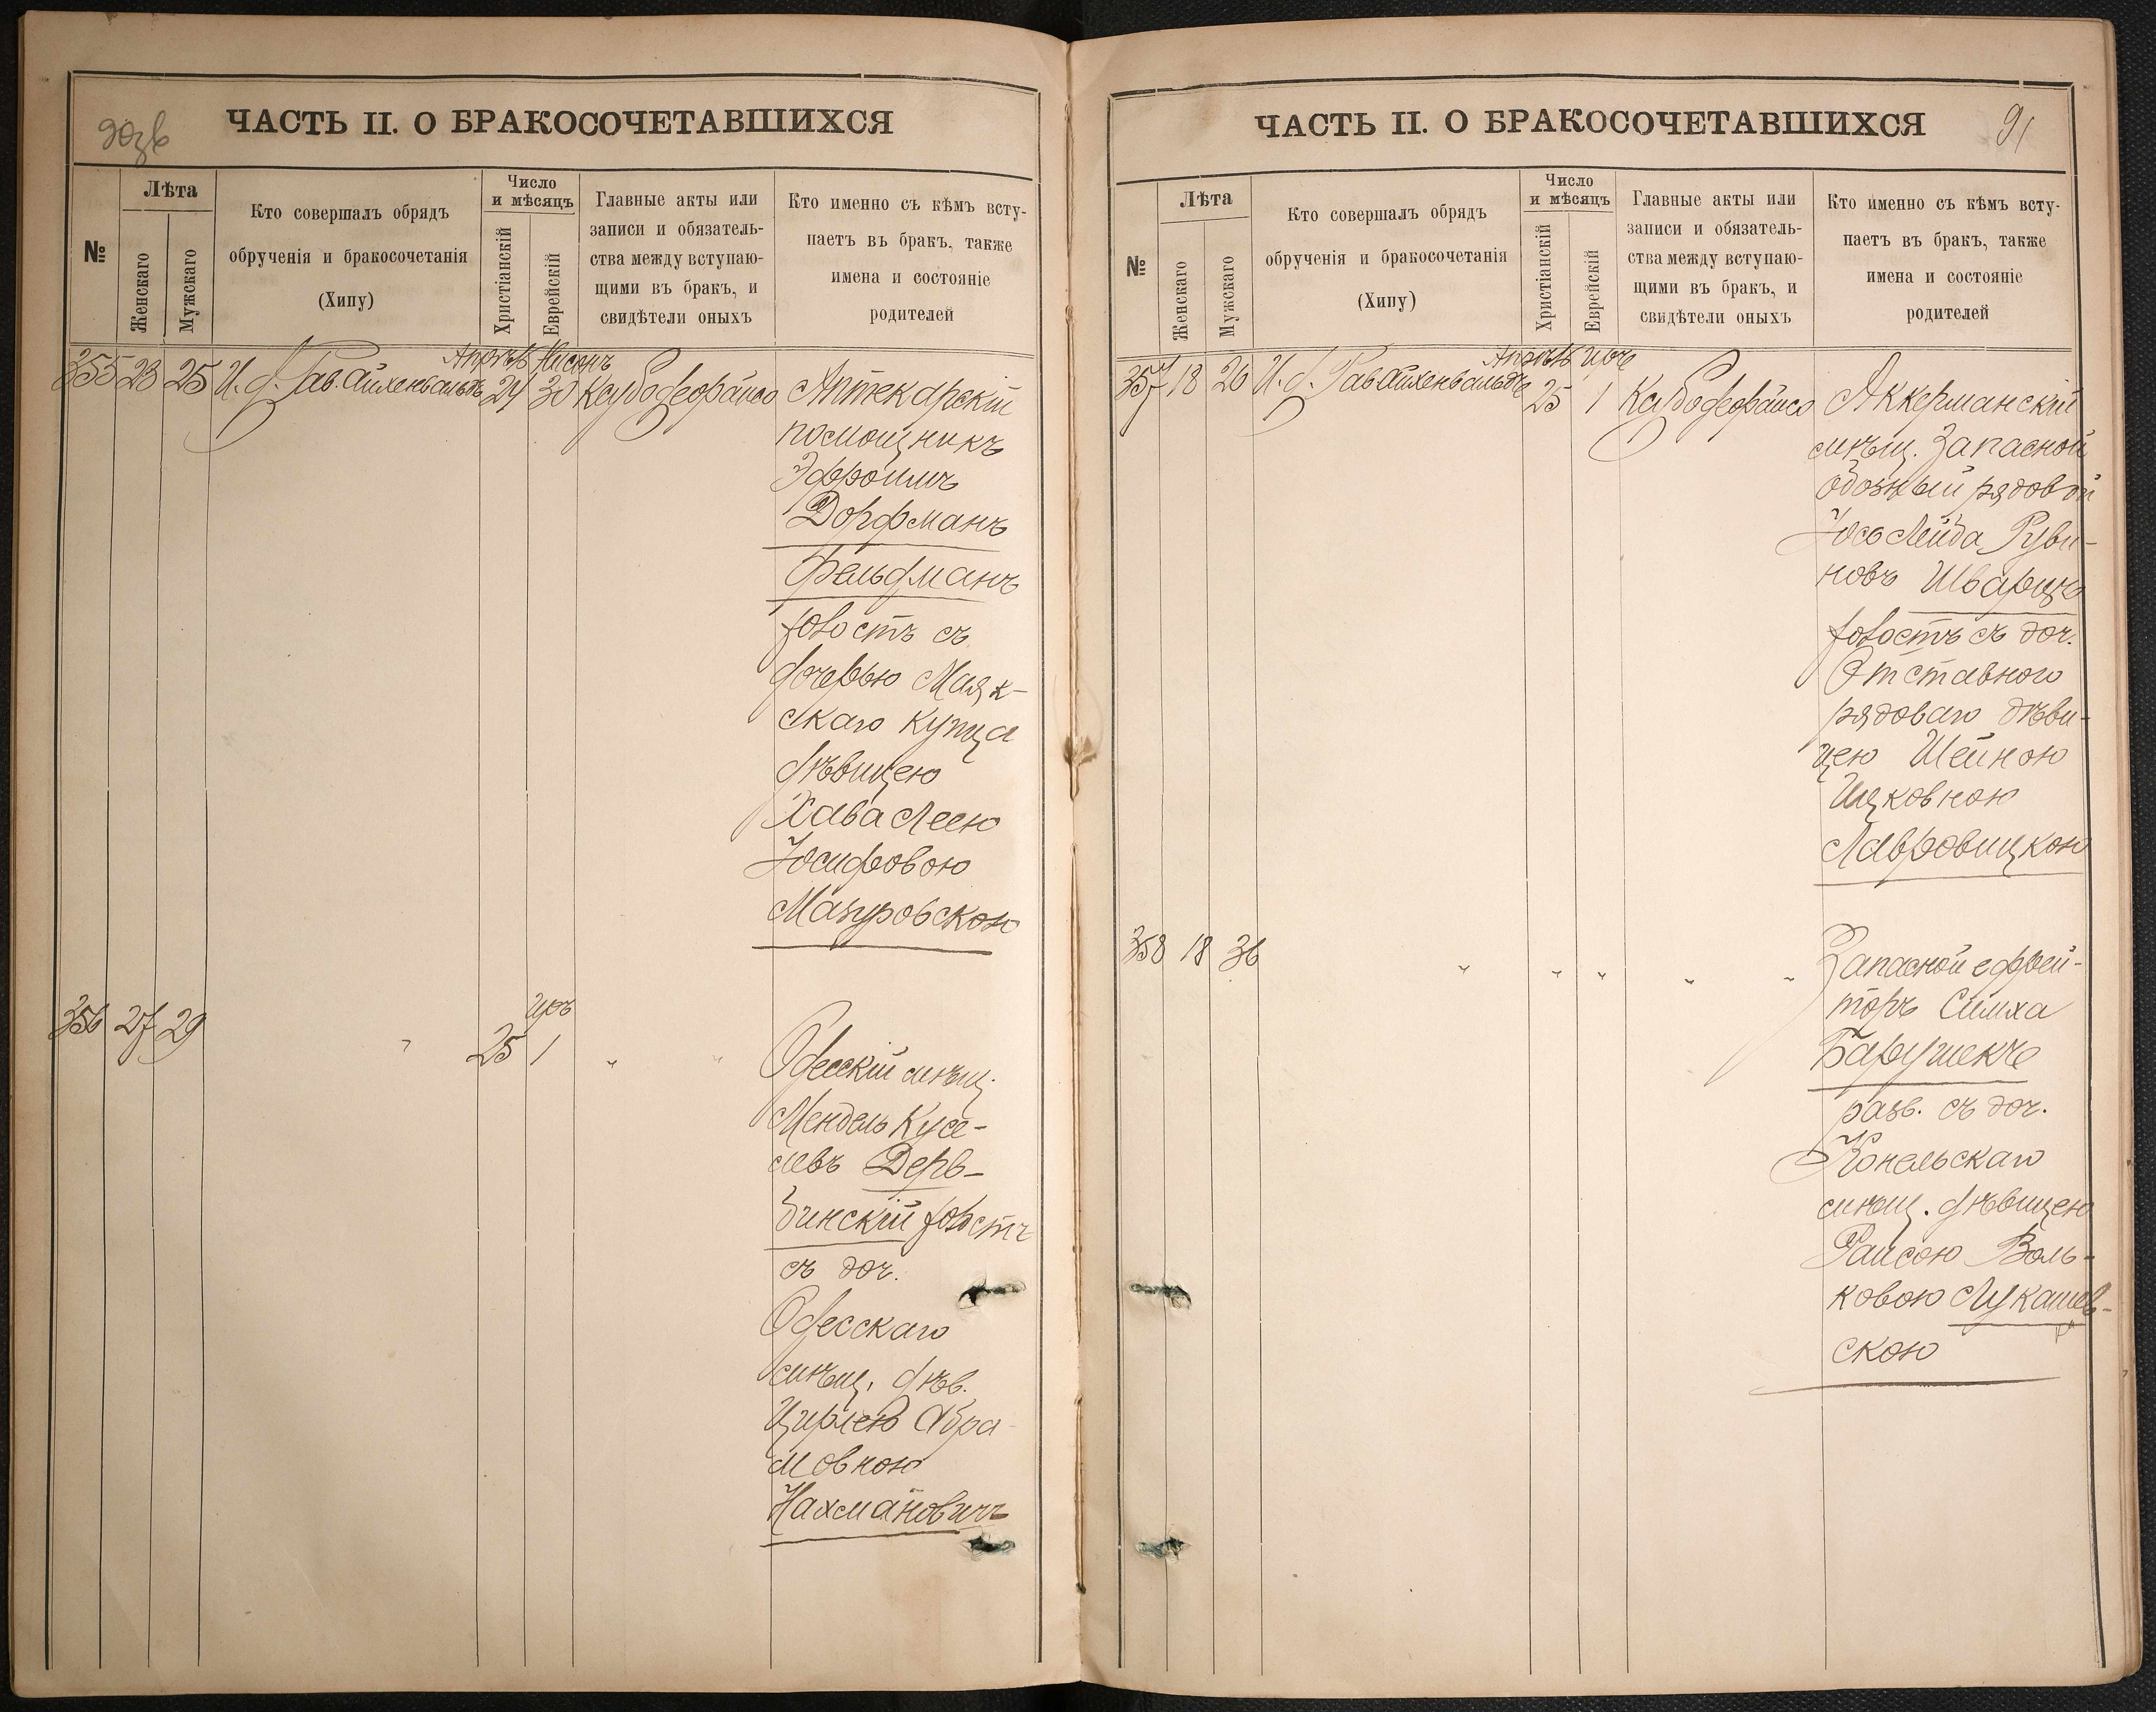 ЧАСТЬ II. О БРАКОСОЧЕТАВШИХСЯ
№
Лѣта
Женскаго
Мужскаго
Кто совершалъ обрядъ
обрученія и бракосочетанія
(Хипу)
Число
и мѣсяцъ
Христіанскій
Еврейскій
Главные акты или
записи и обязатель-
ства между вступаю-
щими въ бракъ, и
свидѣтели оныхъ
Кто именно съ кѣмъ всту-
паетъ въ бракъ, также
имена и состояніе
родителей
Апрѣль Нисонъ
355 23 25 И. д. Рав. Айхенвальдъ 24 30
Аптекарскій
помощникъ
Эфроимъ
Дорфманъ
Фельдманъ
холостъ съ
дочерью Маяк-
скаго купца
дѣвицею
Хава Леею
Іосифовою
Мазуровскою
Іяръ
356 27 29 " 25 1 " "
Одесскій мѣщ.
Мендель Кусе-
левъ Дерб-
бинскій холостъ
съ доч.
Одесскаго
мѣщ. дѣв.
Цирлею Абра-
мовною
Нахмановичъ
ЧАСТЬ II. О БРАКОСОЧЕТАВШИХСЯ
91
№
Лѣта
Женскаго
Мужскаго
Кто совершалъ обрядъ
обрученія и бракосочетанія
(Хипу)
Число
и мѣсяцъ
Христіанскій
Еврейскій
Главные акты или
записи и обязатель-
ства между вступаю-
щими въ бракъ, и
свидѣтели оныхъ
Кто именно съ кѣмъ всту-
паетъ въ бракъ, также
имена и состояніе
родителей
Апрѣль Іяръ
357 18 26 И. д. Рав Айхенвальдъ 25 1
Аккерманскій
мѣщ. Запасной
обозный рядовой
Іось Лейба Руви-
новъ Шварцъ
холостъ съ доч.
Отставного
рядоваго дѣви-
цею Шейною
Ицковною
Лавровицкою
358 18 36 " " " " "
Запасной ефрей-
торъ Симха
Барушекъ
разв. съ доч.
Конельскаго
мѣщ. дѣвицею
Раисою Воль-
ковою Лукашев-
скою